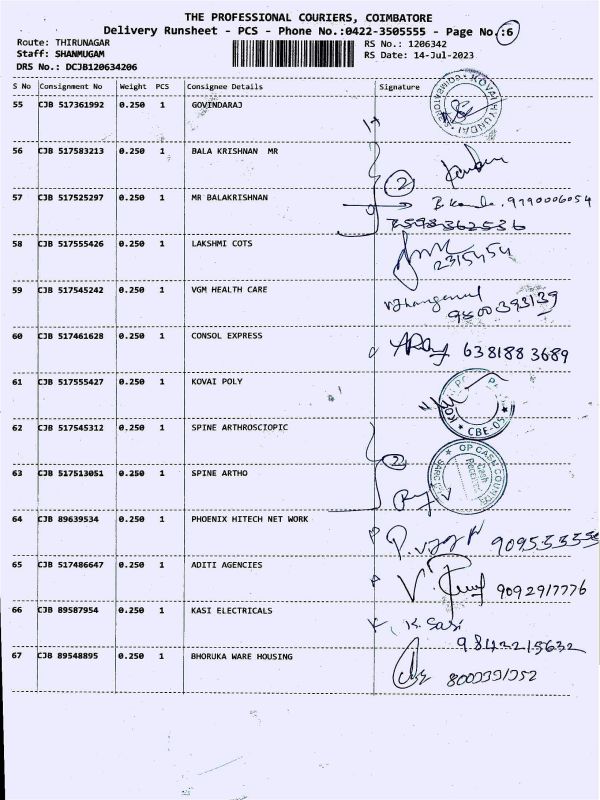 THE PROFESSIONAL COURIERS, COIMBATORE
Delivery Runsheet - PCS - Phone No.:0422-3505555 - Page No.:6
Route: THIRUNAGAR
RS No.: 1206342
Staff: SHANMUGAM
RS Date: 14-Jul-2023
DRS No.: DCJB120634206
S No Consignment No Weight PCS Consignee Details Signature
55 CJB 517361992 0.250 1 GOVINDARAJ
KOVAI HYUNDAI
56 CJB 517583213 0.250 1 BALA KRISHNAN MR
2
57 CJB 517525297 0.250 1 MR BALAKRISHNAN
9790006054
7598362536
58 CJB 517555426 0.250 1 LAKSHMI COTS
2315454
59 CJB 517545242 0.250 1 VGM HEALTH CARE
9800393139
60 CJB 517461628 0.250 1 CONSOL EXPRESS
6381883689
61 CJB 517555427 0.250 1 KOVAI POLY
CBE-05
62 CJB 517545312 0.250 1 SPINE ARTHROSCIOPIC
2
OP CASH COUNTER
Cash
Received
63 CJB 517513051 0.250 1 SPINE ARTHO
64 CJB 89639534 0.250 1 PHOENIX HITECH NET WORK
65 CJB 517486647 0.250 1 ADITI AGENCIES
9092917776
66 CJB 89587954 0.250 1 KASI ELECTRICALS
K. Sasi
9842215632
67 CJB 89548895 0.250 1 BHORUKA WARE HOUSING